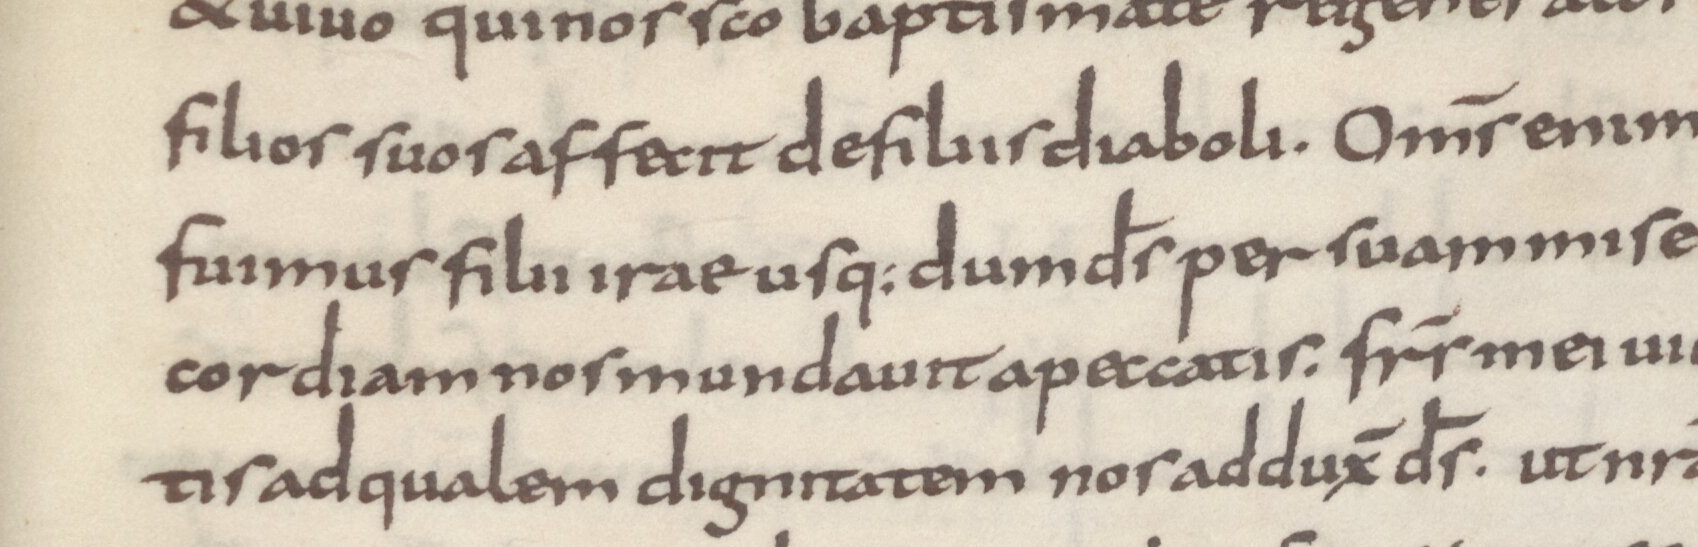 & uiuo qui nos sco baptismate regenerat
filios suos affecit de filiis diaboli. Om̄s enim
fuimus filii irae usq; dum d̄s per suam mise
cordiam nos mundauit a peccatis. fr̄s mei ui
tis ad qualem dignitatem nos addux̄ d̄s. ut nr̄